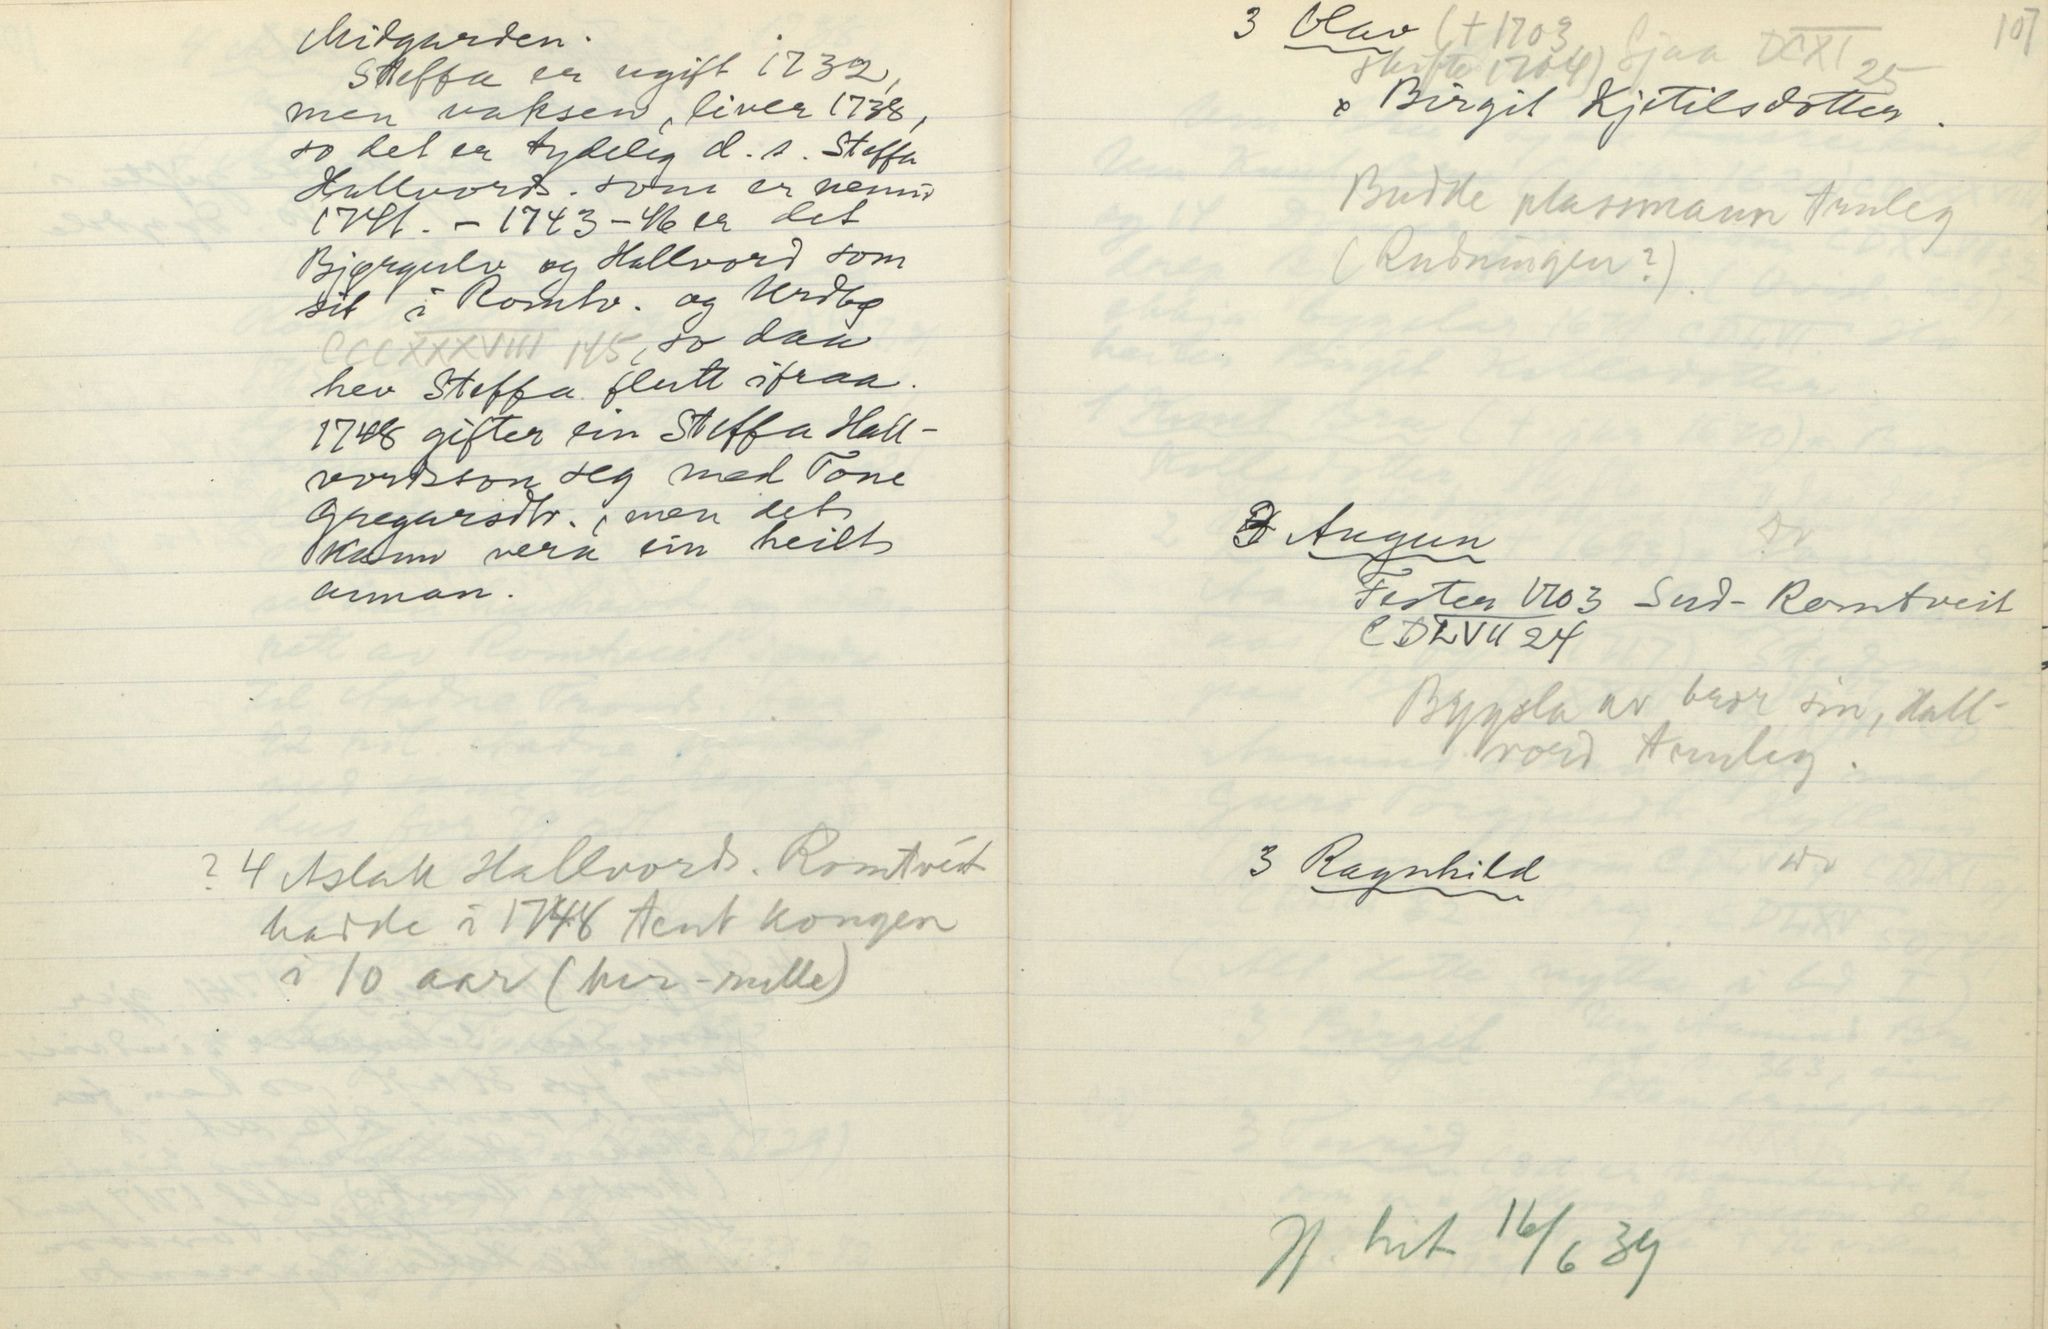 Midgarden.
Steffa er ugift i 1732,
men vaksen, liver 1738,
so det er tydeleg d. s. Steffa
Hallvords. som er nemnd
1741. – 1743–46 er det
Bjørgulv og Hallvord som
sit i Romtv. og Urdbø
CCCXXXVIII 145, so daa
hev Steffa flutt ifraa.
1748 gifter ein Steffa Hall-
vordsson seg med Tone
Gregarsdtr., men det
kann vera ein heilt
annan.
? 4 Aslak Hallvords. Romtveit
hadde i 1748 tent kongen
i 10 aar (her-rulle)
107
3 Olav († 1703
skifte 1704) Sjaa DCXI 25
x Birgit Kjetilsdotter.
Budde plassmann Arnleg
(Rudningen?).
3 Augun
Fester 1703 Sud-Romtveit
CDLVII 24
Bygsla av bror sin, Hall-
vord Arnleg.
3 Ragnhild
hit 16/6 39